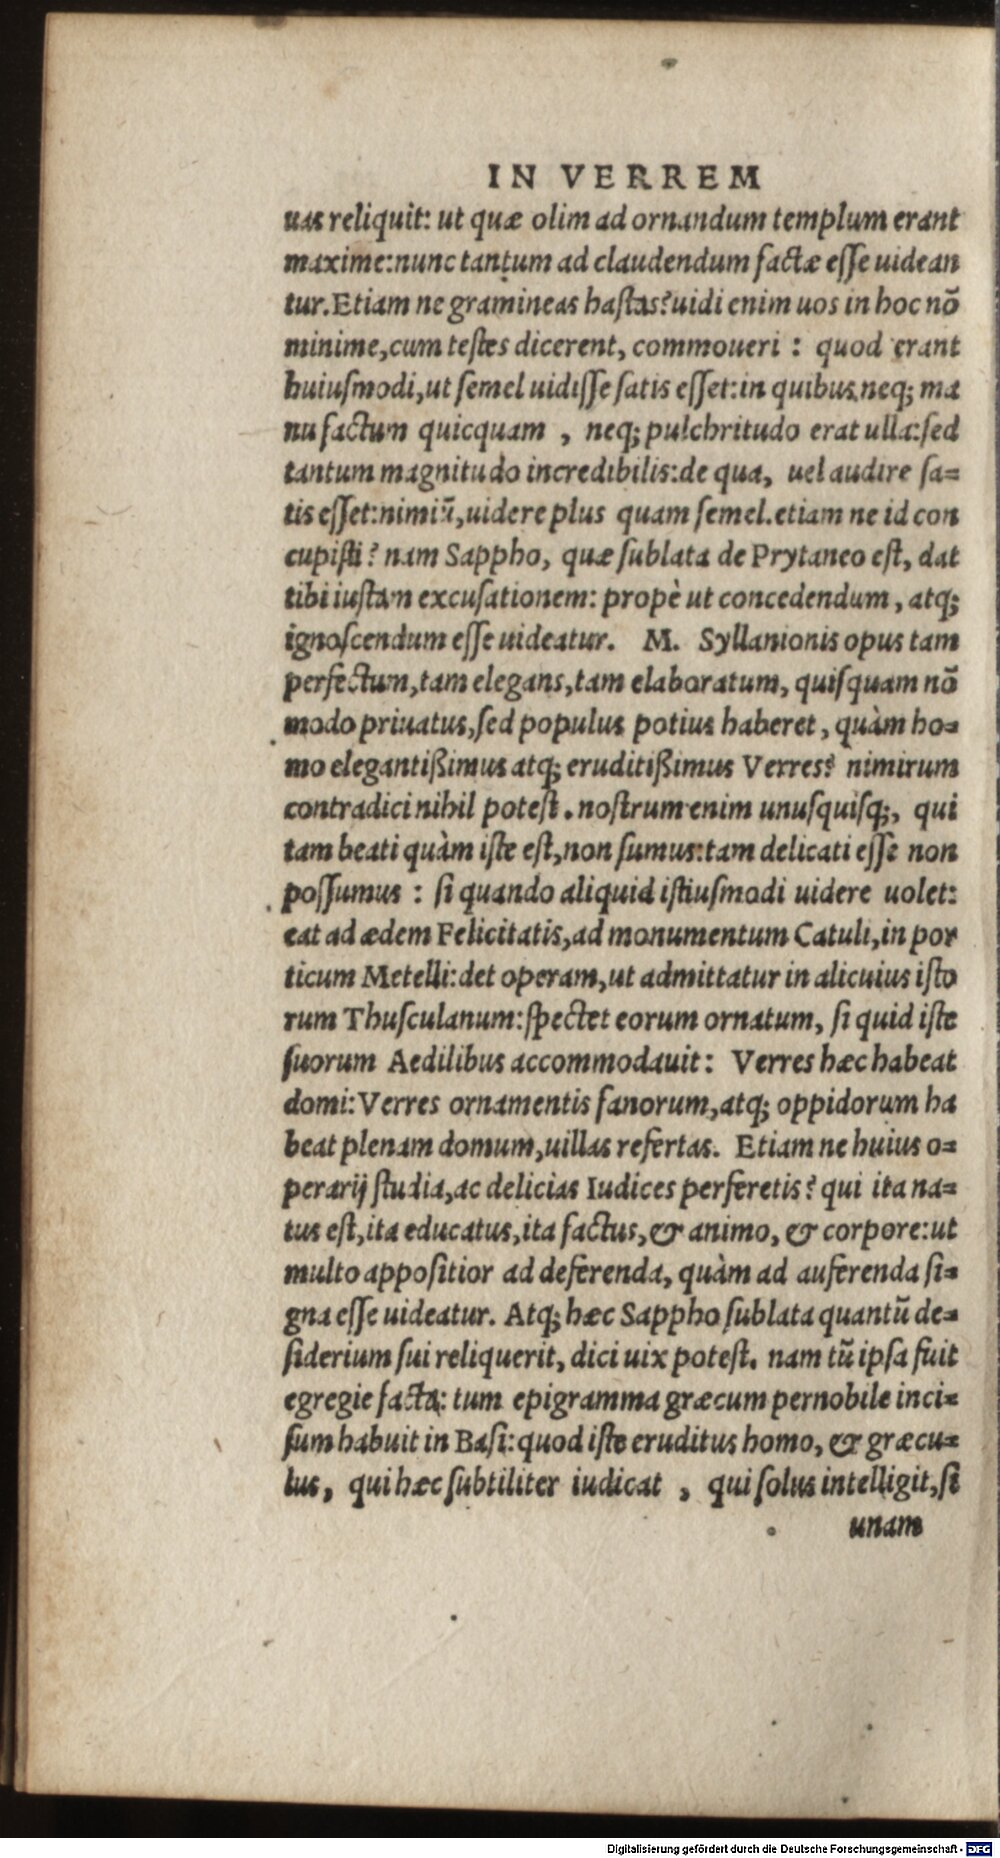 IN VERREM
uas reliquit: ut quæ olim ad ornandum templum erant
maxime: nunc tantum ad claudendum factæ esse uidean
tur. Etiam ne gramineas hastas? uidi enim uos in hoc nō
minime, cum testes dicerent, commoueri : quod erant
huiusmodi, ut semel uidisse satis esset: in quibus neq; ma
nu factum quicquam , neq; pulchritudo erat ulla: sed
tantum magnitudo incredibilis: de qua, uel audire sa=
tis esset: nimiū, uidere plus quam semel. etiam ne id con
cupisti? nam Sappho, quæ sublata de Prytaneo est, dat
tibi iustam excusationem: propè ut concedendum , atq;
ignoscendum esse uideatur. M. Syllanionis opus tam
perfectum, tam elegans, tam elaboratum, quisquam nō
modo priuatus, sed populus potius haberet, quàm ho=
mo elegantißimus atq; eruditißimus Verres? nimirum
contradici nihil potest. nostrum enim unusquisq;, qui
tam beati quàm iste est, non sumus: tam delicati esse non
possumus : si quando aliquid istiusmodi uidere uolet:
eat ad ædem Felicitatis, ad monumentum Catuli, in por
ticum Metelli: det operam, ut admittatur in alicuius isto
rum Thusculanum: spectet eorum ornatum, si quid iste
suorum Aedilibus accommodauit: Verres hæc habeat
domi: Verres ornamentis fanorum, atq; oppidorum ha
beat plenam domum, uillas refertas. Etiam ne huius o=
perarij studia, ac delicias Iudices perferetis? qui ita na=
tus est, ita educatus, ita factus, & animo, & corpore: ut
multo appositior ad deferenda, quàm ad auferenda si=
gna esse uideatur. Atq; hæc Sappho sublata quantū de=
siderium sui reliquerit, dici uix potest. nam tū ipsa fuit
egregie facta: tum epigramma græcum pernobile inci=
sum habuit in Basi: quod iste eruditus homo, & græcu=
lus, qui hæc subtiliter iudicat , qui solus intelligit, si
unam
Digitalisierung gefördert durch die Deutsche Forschungsgemeinschaft - DFG